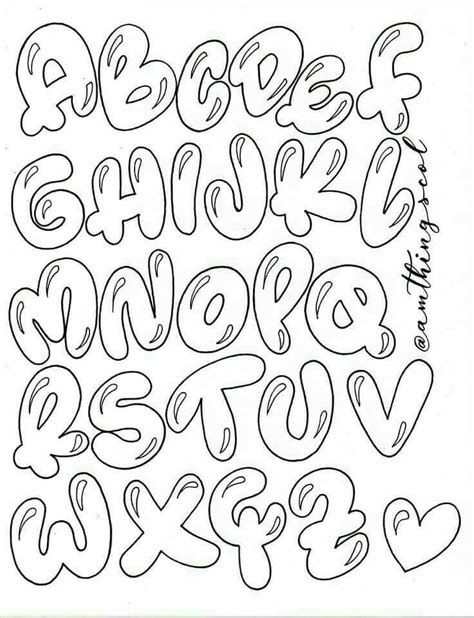 ABCDEF
GHIJKL
MNOPQ
RSTUV
WXYZ
@amthingscol